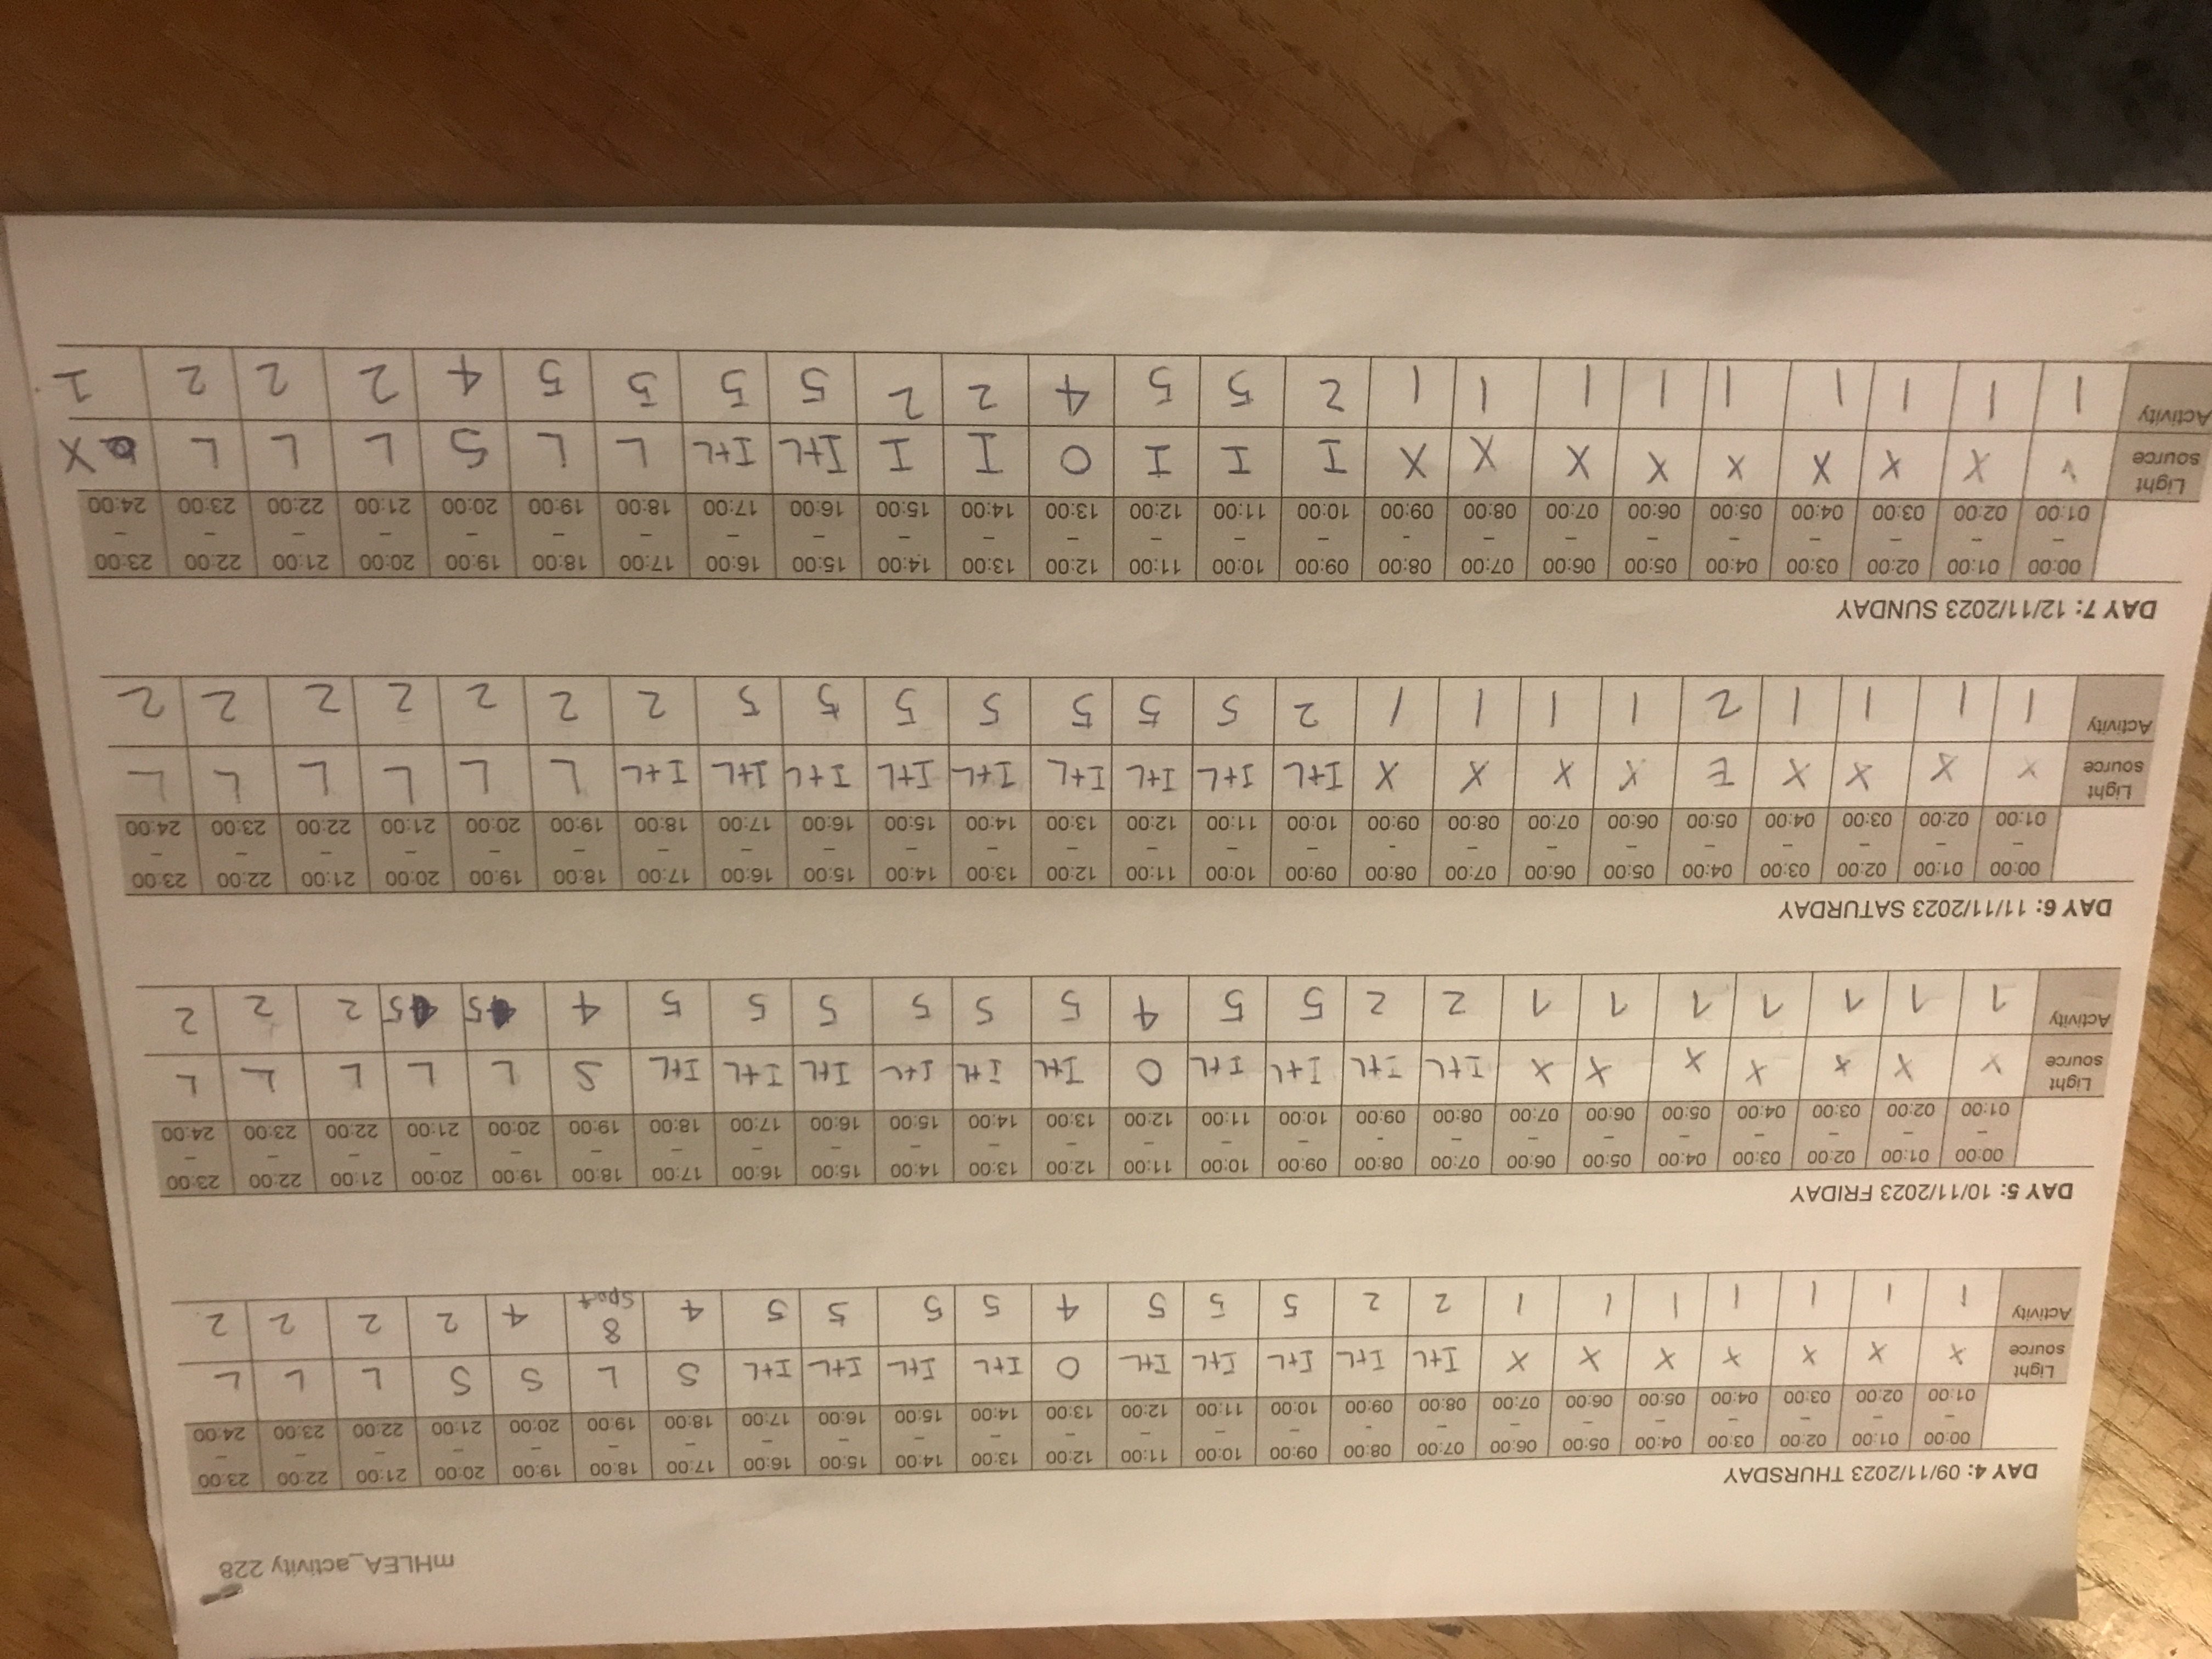 mHLEA_activity 228
DAY 4: 09/11/2023 THURSDAY
00:00 – 01:00 01:00 – 02:00 02:00 – 03:00 03:00 – 04:00 04:00 – 05:00 05:00 – 06:00 06:00 – 07:00 07:00 – 08:00 08:00 - 09:00 09:00 – 10:00 10:00 – 11:00 11:00 – 12:00 12:00 – 13:00 13:00 – 14:00 14:00 – 15:00 15:00 – 16:00 16:00 – 17:00 17:00 – 18:00 18:00 – 19:00 19:00 – 20:00 20:00 – 21:00 21:00 – 22:00 22:00 – 23:00 23:00 – 24:00
Light source X X X X X X X I+L I+L I+L I+L I+L O I+L I+L I+L I+L S L S S L L L
Activity 1 1 1 1 1 1 1 2 2 5 5 5 4 5 5 5 5 4 8 Sport 4 2 2 2 2
DAY 5: 10/11/2023 FRIDAY
00:00 – 01:00 01:00 – 02:00 02:00 – 03:00 03:00 – 04:00 04:00 – 05:00 05:00 – 06:00 06:00 – 07:00 07:00 – 08:00 08:00 - 09:00 09:00 – 10:00 10:00 – 11:00 11:00 – 12:00 12:00 – 13:00 13:00 – 14:00 14:00 – 15:00 15:00 – 16:00 16:00 – 17:00 17:00 – 18:00 18:00 – 19:00 19:00 – 20:00 20:00 – 21:00 21:00 – 22:00 22:00 – 23:00 23:00 – 24:00
Light source X X X X X X X I+L I+L I+L I+L O I+L I+L I+L I+L I+L I+L S L L L L L
Activity 1 1 1 1 1 1 1 2 2 5 5 4 5 5 5 5 5 5 4 5 5 2 2 2
DAY 6: 11/11/2023 SATURDAY
00:00 – 01:00 01:00 – 02:00 02:00 – 03:00 03:00 – 04:00 04:00 – 05:00 05:00 – 06:00 06:00 – 07:00 07:00 – 08:00 08:00 - 09:00 09:00 – 10:00 10:00 – 11:00 11:00 – 12:00 12:00 – 13:00 13:00 – 14:00 14:00 – 15:00 15:00 – 16:00 16:00 – 17:00 17:00 – 18:00 18:00 – 19:00 19:00 – 20:00 20:00 – 21:00 21:00 – 22:00 22:00 – 23:00 23:00 – 24:00
Light source X X X X E X X X X I+L I+L I+L I+L I+L I+L I+L I+L I+L L L L L L L
Activity 1 1 1 1 2 1 1 1 1 2 5 5 5 5 5 5 5 2 2 2 2 2 2 2
DAY 7: 12/11/2023 SUNDAY
00:00 – 01:00 01:00 – 02:00 02:00 – 03:00 03:00 – 04:00 04:00 – 05:00 05:00 – 06:00 06:00 – 07:00 07:00 – 08:00 08:00 - 09:00 09:00 – 10:00 10:00 – 11:00 11:00 – 12:00 12:00 – 13:00 13:00 – 14:00 14:00 – 15:00 15:00 – 16:00 16:00 – 17:00 17:00 – 18:00 18:00 – 19:00 19:00 – 20:00 20:00 – 21:00 21:00 – 22:00 22:00 – 23:00 23:00 – 24:00
Light source X X X X X X X X X I I I O I I I+L I+L L L S L L L X
Activity 1 1 1 1 1 1 1 1 1 2 5 5 4 2 2 5 5 5 5 4 2 2 2 1